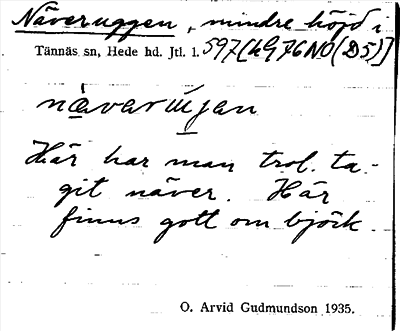 Näveruggen, mindre höjd i
Tännäs sn, Hede hd. Jtl. l. 597[hG76NO(D5)]
Här har man trol. ta-
git näver. Här
finns gott om björk.
O. Arvid Gudmundson 1935.